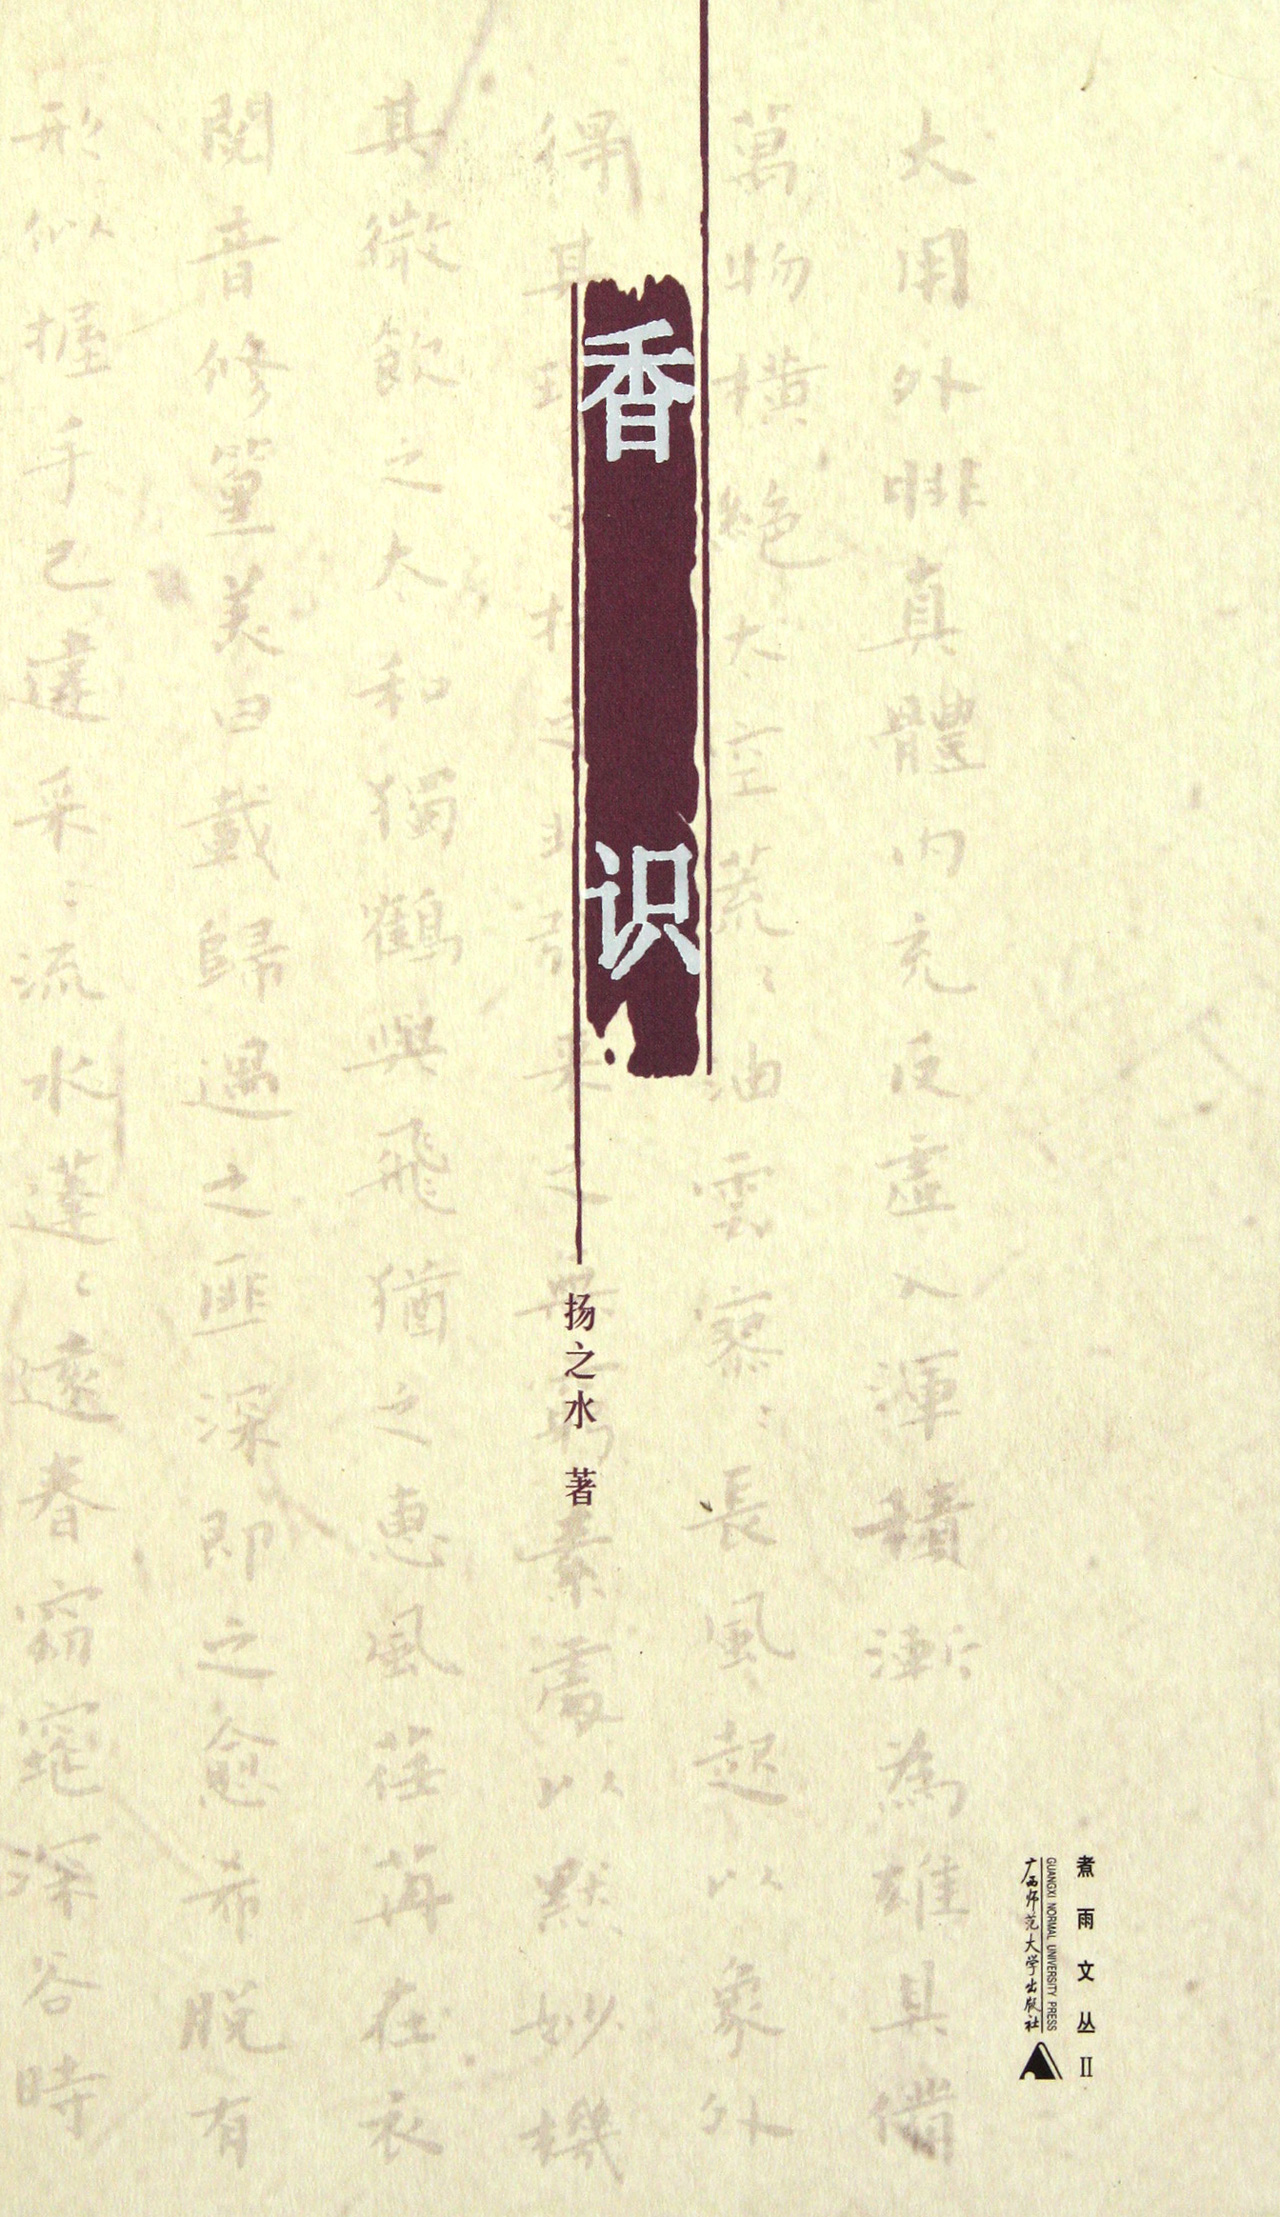 香识
扬之水 著
煮雨文丛Ⅱ
GUANGXI NORMAL UNIVERSITY PRESS
广西师范大学出版社
大用外腓真體內充反虛入渾積漸為雄具備
萬物橫絕太空荒〻油雲寥〻長風起以象外
得其來之無窮素處以默妙機
其微飲之太和獨鶴與飛猶之惠風荏苒在衣
閱音修篁美曰載歸遇之匪深即之愈希脫有
形似握手已違采〻流水蓬〻遠春窈窕深谷時